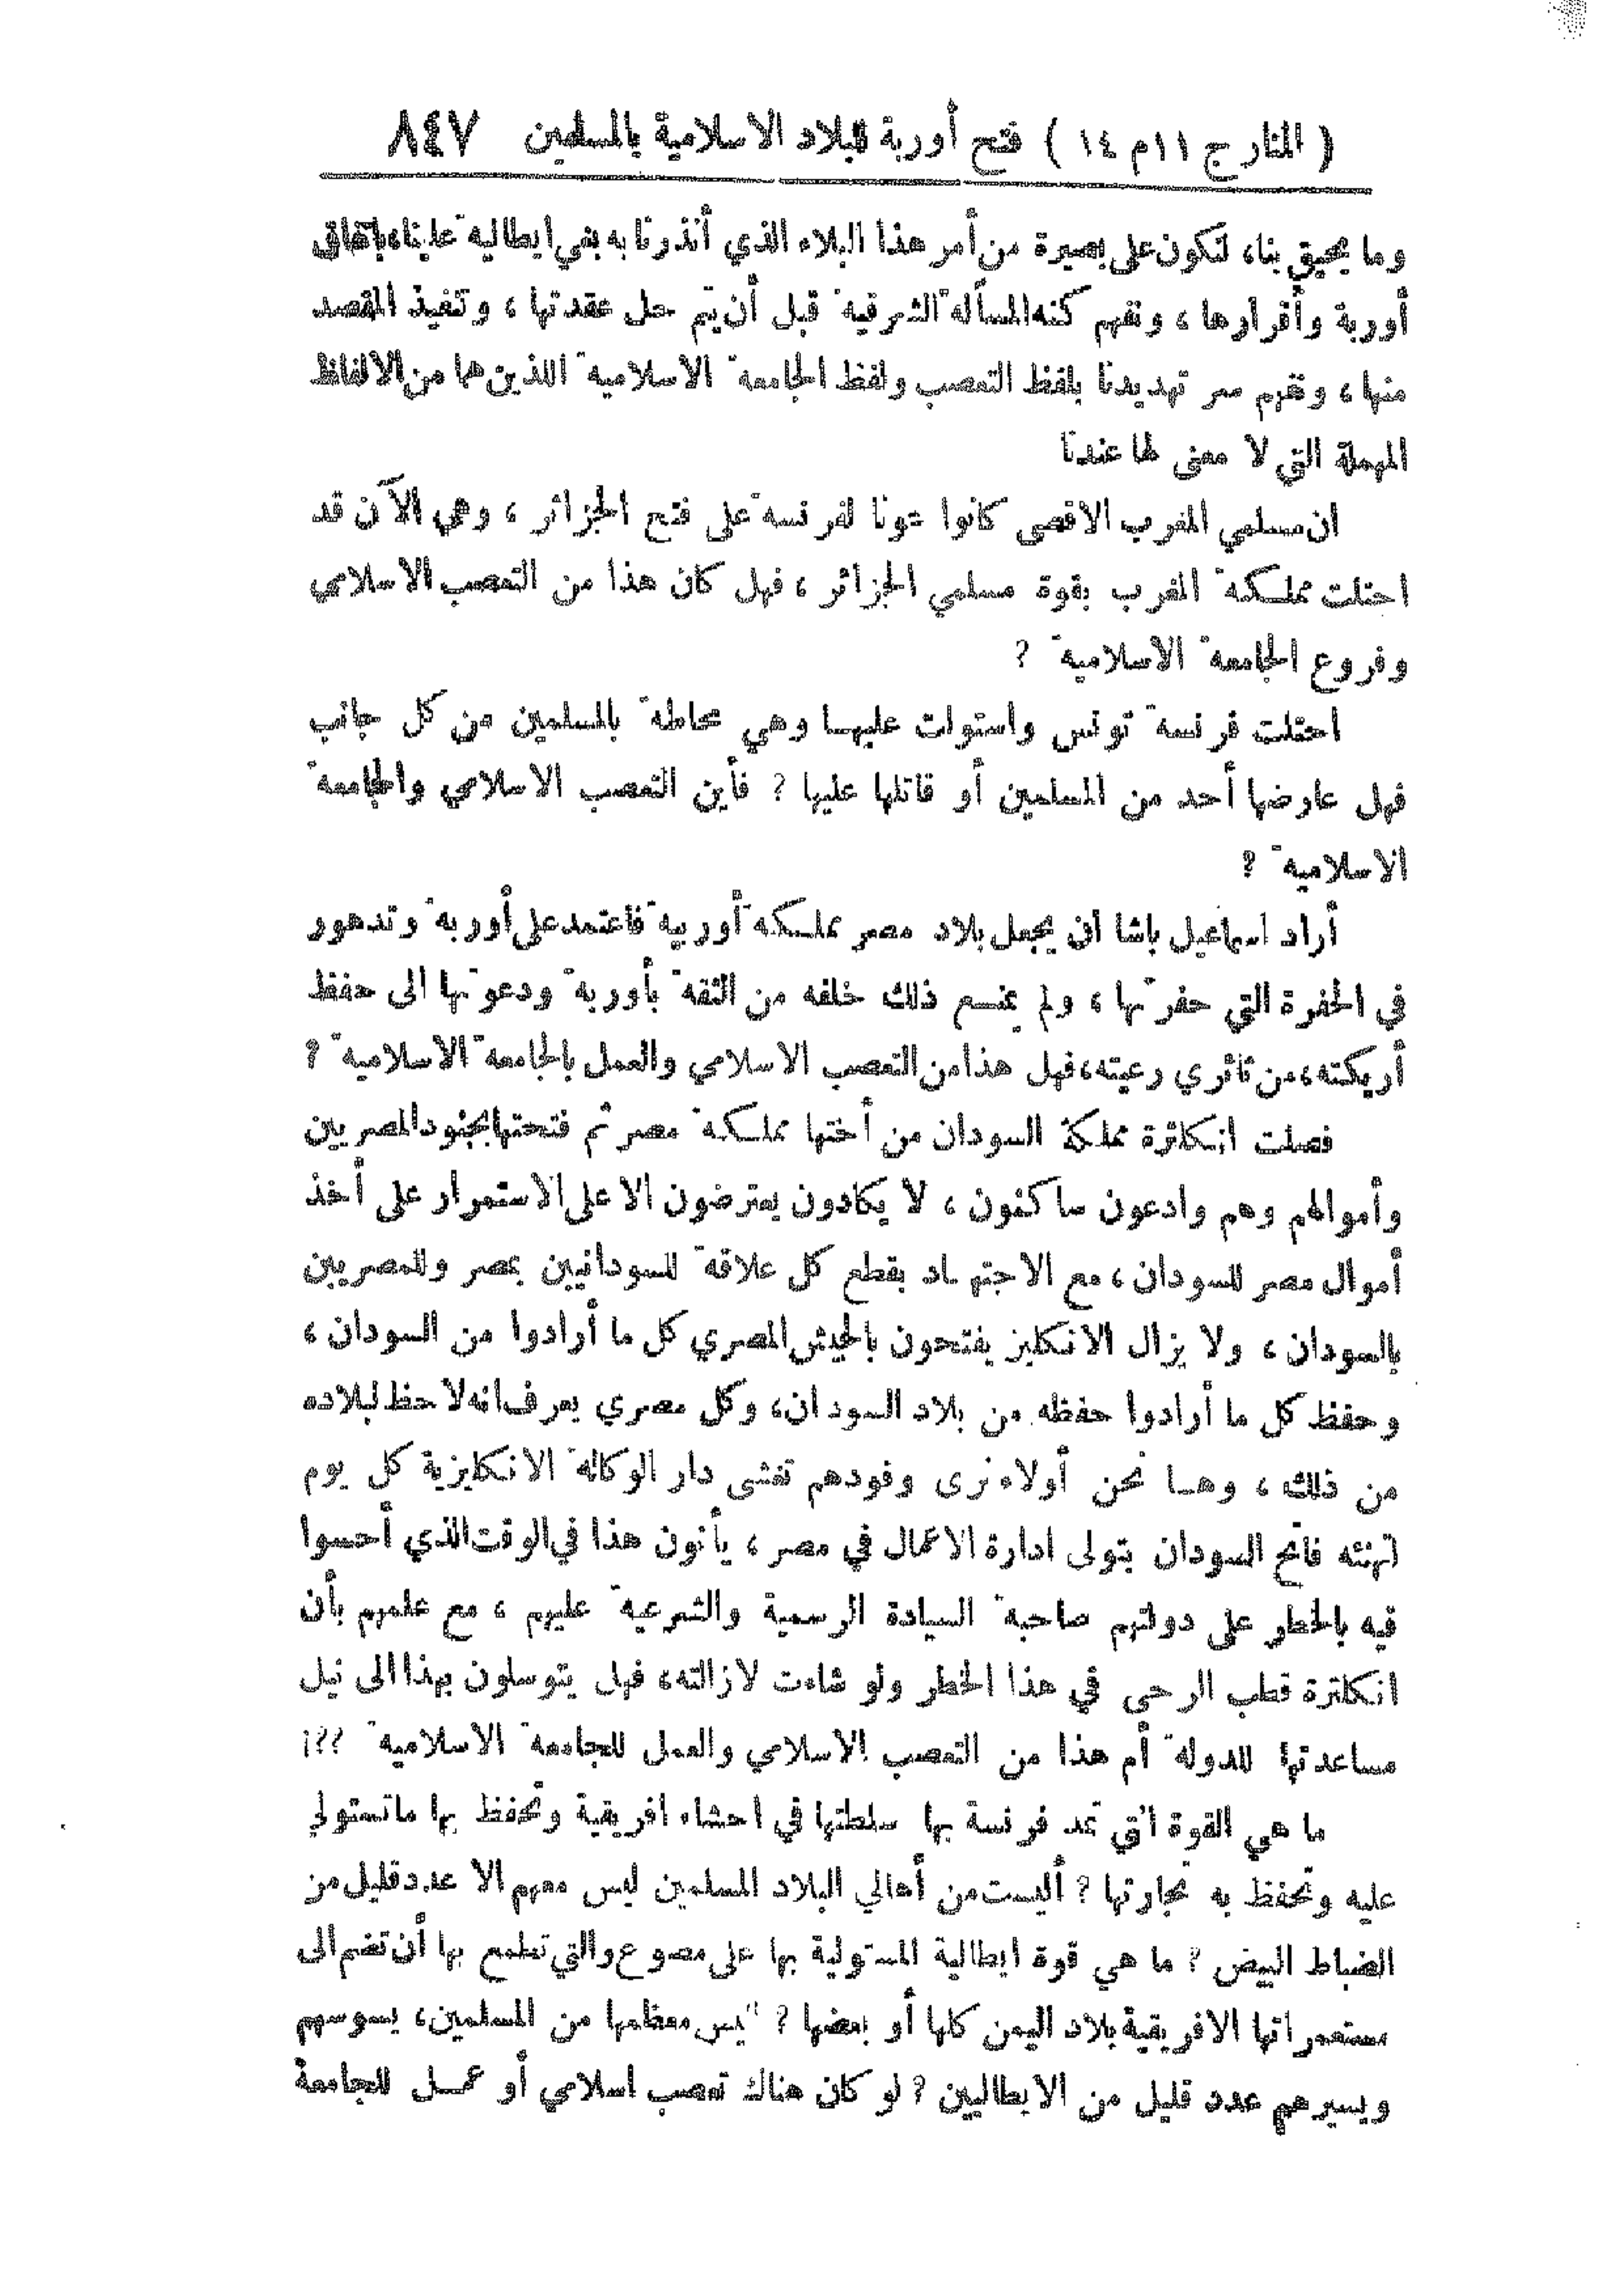 ( المنار ج ١١ م ١٤ ) فتح أوربة للبلاد الاسلامية بالمسلمين ٨٤٧
وما يحيق بنا، لنكون على بصيرة من أمر هذا البلاء الذي أنذرتنا به بغي ايطالية علينا، باتفاق
أوربة وأقرارها ، ونفهم كنه المسألة الشرقية قبل أن يتم حل عقدتها ، وتنفيذ المقصد
منها ، ونفهم سر تهديدنا بلفظ التعصب ولفظ الجامعة الاسلامية اللذين هما من الالفاظ
المهملة التي لا معنى لها عندنا
ان مسلمي المغرب الاقصى كانوا عونا لفرنسة على فتح الجزائر ، وهي الآن قد
احتلت مملكة المغرب بقوة مسلمي الجزائر ، فهل كان هذا من التعصب الاسلامي
وفروع الجامعة الاسلامية ؟
احتلت فرنسة تونس واستولت عليها وهي محاطة بالمسلمين من كل جانب
فهل عارضها أحد من المسلمين أو قاتلها عليها ؟ فأين التعصب الاسلامي والجامعة
الاسلامية ؟
أراد اسماعيل باشا ان يجعل بلاد مصر مملكة أوربية فاعتمد على أوربة وتدهور
في الحفرة التي حفرتها ، ولم يمنع ذلك خلفه من الثقة بأوربة ودعوتها الى حفظ
أريكته، من ثائري رعيته، فهل هذا من التعصب الاسلامي والعمل بالجامعة الاسلامية ؟
فصلت انكلترة مملكة السودان من أختها مملكة مصر ثم فتحتها بجنود المصريين
وأموالهم وهم وادعون ساكنون ، لا يكادون يعترضون الا على الاستمرار على أخذ
أموال مصر للسودان ، مع الاجتهاد بقطع كل علاقة للسودانيين بمصر وللمصريين
بالسودان ، ولا يزال الانكليز يفتحون بالجيش المصري كل ما أرادوا من السودان ،
وحفظ كل ما أرادوا حفظه من بلاد السودان، وكل مصري يعرف انه لا حظ لبلاده
من ذلك ، وها نحن أولاء نرى وفودهم تغشى دار الوكالة الانكليزية كل يوم
لتهنئه فاتح السودان بتولى ادارة الاعمال في مصر ، يأتون هذا في الوقت الذي أحسوا
فيه بالخطر على دولتهم صاحبة السيادة الرسمية والشرعية عليهم ، مع علمهم بأن
انكلترة قطب الرحى في هذا الخطر ولو شاءت لازالته، فهل يتوسلون بهذا الى نيل
مساعدتها للدولة أم هذا من التعصب الاسلامي والعمل للجامعة الاسلامية ؟؟!
ما هي القوة التي تمد فرنسة بها سلطتها في احشاء افريقية وتحفظ بها ما تستولي
عليه وتحفظ به تجارتها ؟ أليست من أهالي البلاد المسلمين ليس معهم الا عدد قليل من
الضباط البيض ؟ ما هي قوة ايطالية المستولية بها على مصوع والتي تطمع بها أن تضم الى
مستعمراتها الافريقية بلاد اليمن كلها أو بعضها ؟ ليس معظمها من المسلمين، يسوسهم
ويسيرهم عدد قليل من الايطاليين ؟ لو كان هناك تعصب اسلامي أو عمل للجامعة